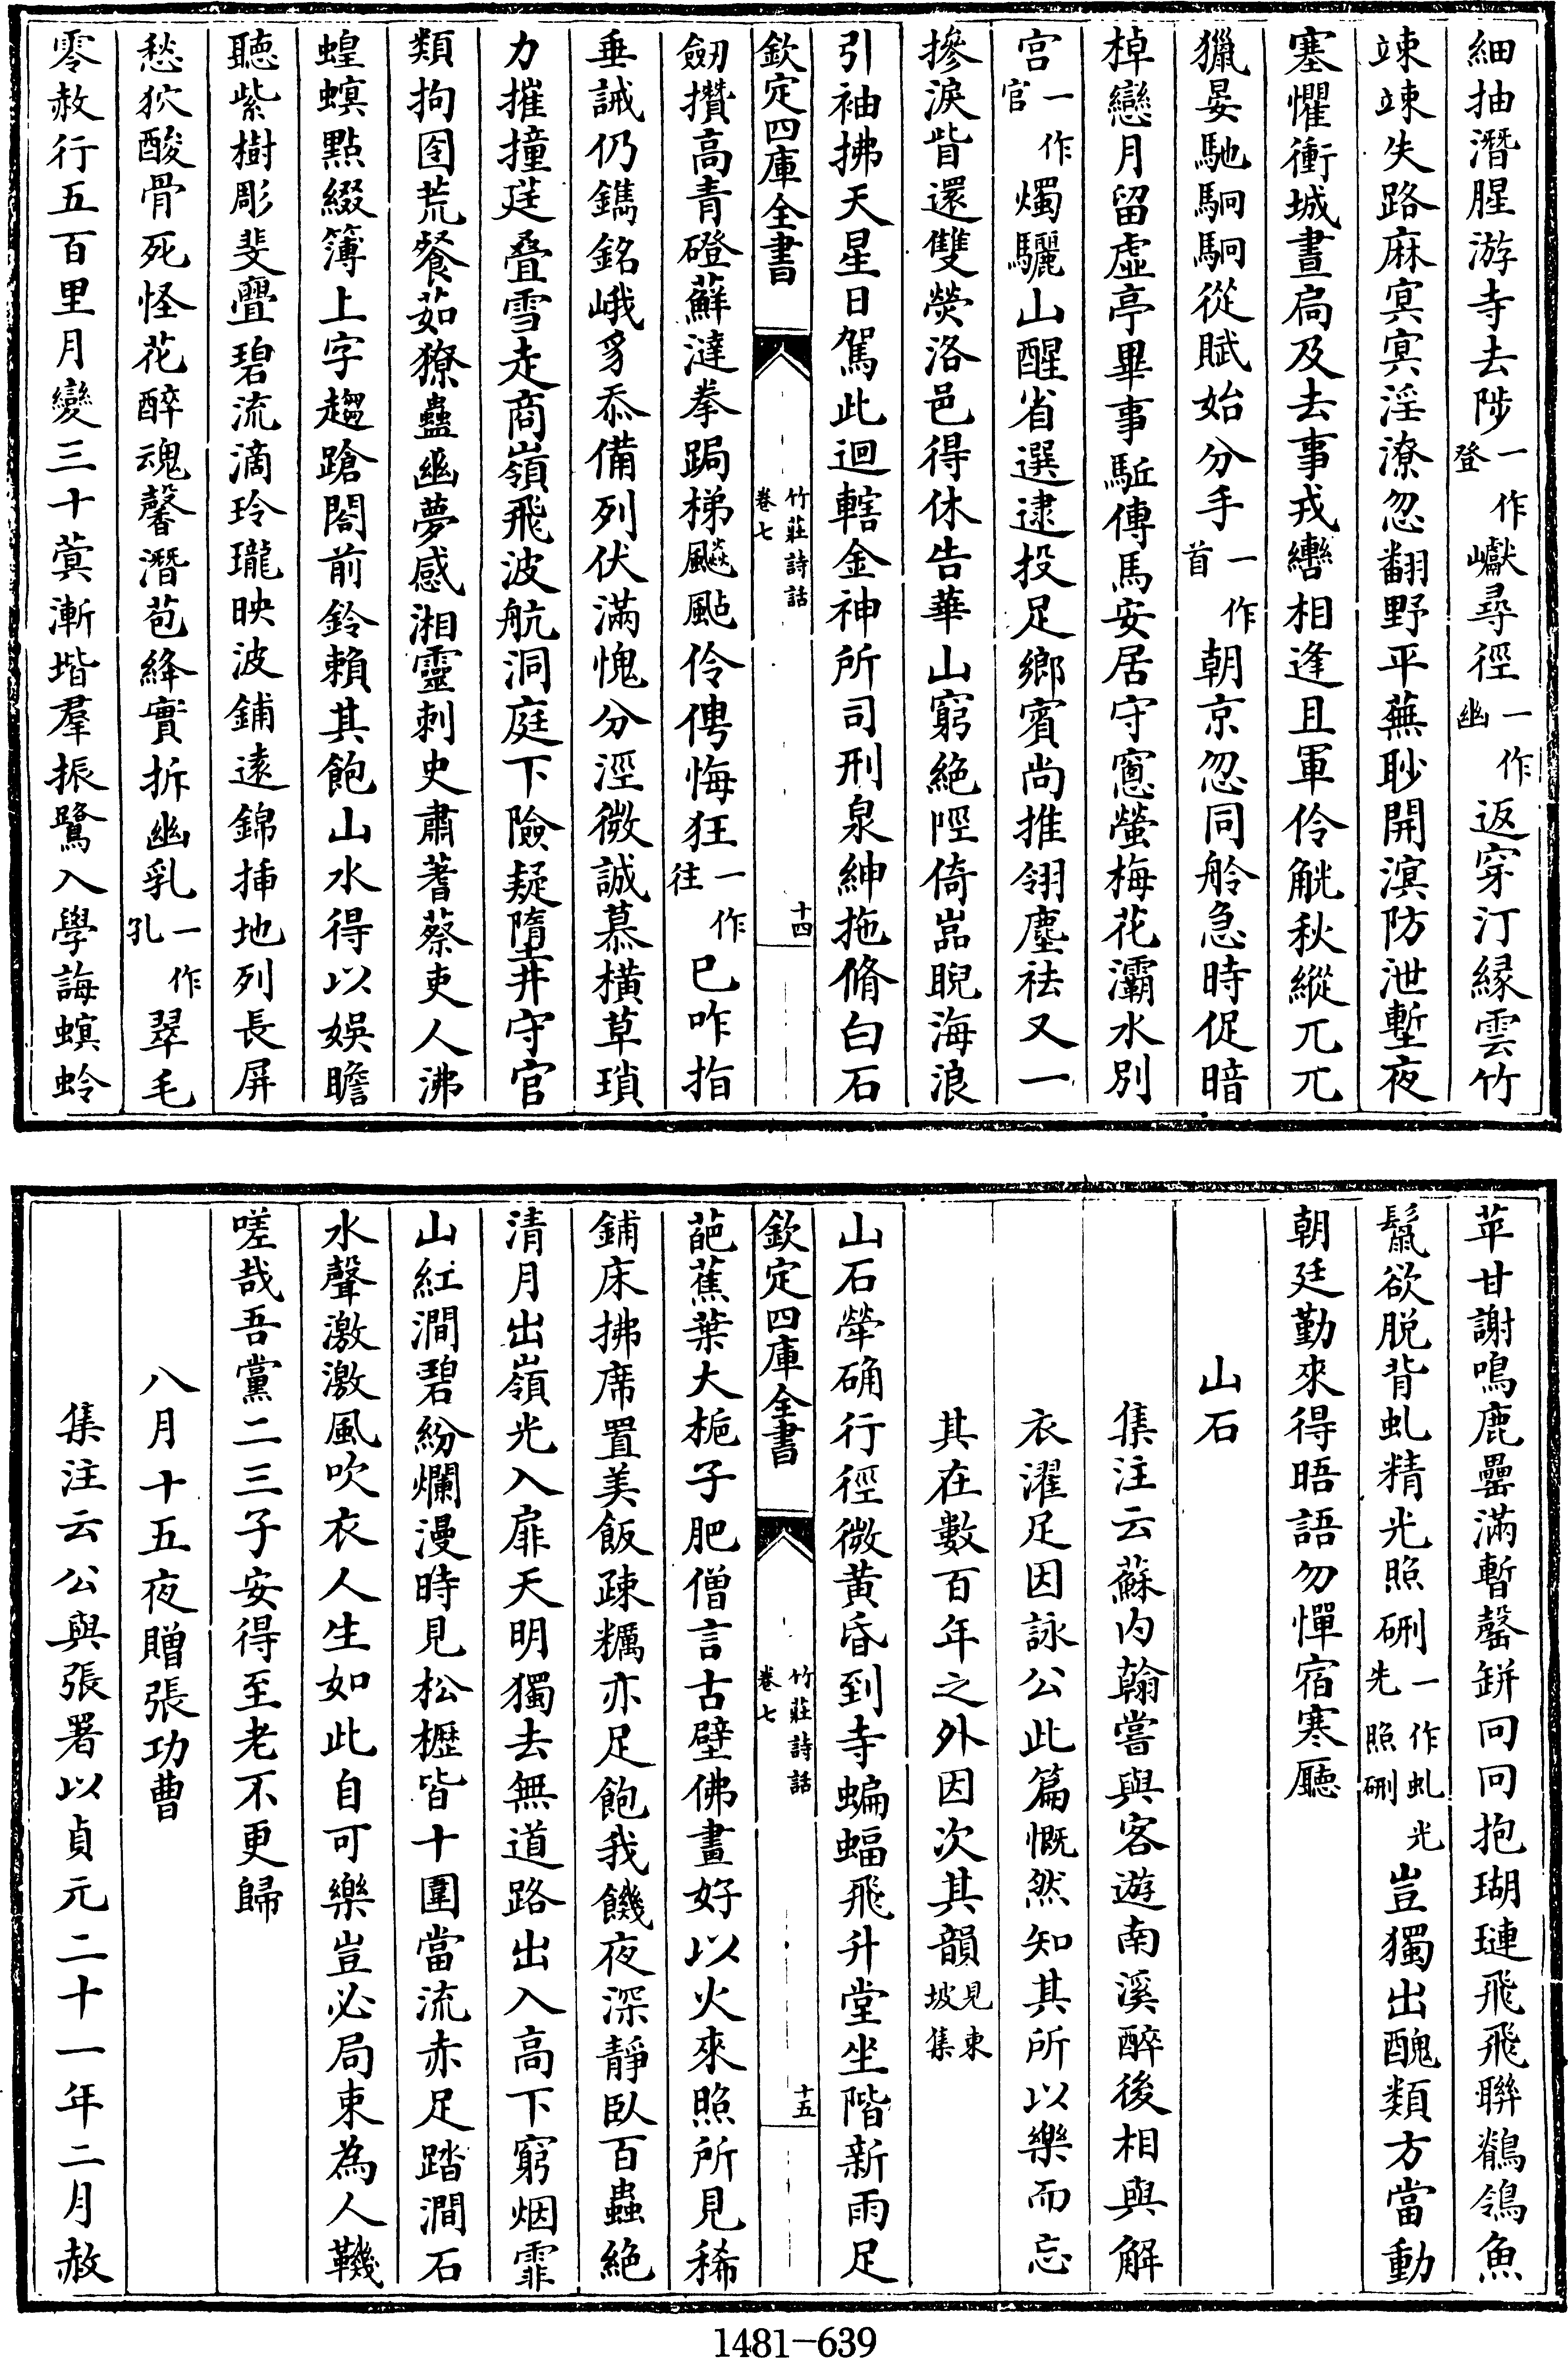 細抽潛腥游寺去陟一作登巘尋徑一作幽返穿汀緣雲竹
竦竦失路麻冥冥淫潦忽翻野平蕪眇開溟防泄塹夜
塞懼衝城晝扃及去事戎轡相逢且軍伶觥秋縱兀兀
獵晏馳駉駉從賦始分手一作首朝京忽同舲急時促暗
棹戀月留虛亭畢事駈傳馬安居守窻螢梅花灞水別
宫一作官燭驪山醒省選逮投足鄉賓尚推翎塵袪又一
摻淚眥還雙熒洛邑得休告華山窮絶陘倚嵓睨海浪
引袖拂天星日駕此迴轄金神所司刑泉紳拖脩白石
欽定四庫全書
竹莊詩話
卷七
十四
劒攢高青磴蘚澾拳跼梯飇颭伶俜悔狂一作往已咋指
垂誡仍鐫銘峨豸忝備列伏滿愧分涇微誠慕横草瑣
力摧撞筳疊雪走商嶺飛波航洞庭下險疑墮井守官
類拘囹荒餐茹獠蠱幽夢感湘靈刺史肅蓍蔡吏人沸
蝗螟點綴簿上字趨蹌閤前鈴賴其飽山水得以娯瞻
聽紫樹彫斐亹碧流滴玲瓏映波鋪遠錦挿地列長屏
愁狖酸骨死怪花醉魂馨潛苞絳實拆幽乳一作孔翠毛
零赦行五百里月變三十蓂漸堦羣振鷺入學誨螟蛉
苹甘謝鳴鹿罍滿暫罄缾冋冋抱瑚璉飛飛聨鶺鴒魚
鬛欲脱背虬精光照硎一作虬光先照硎豈獨出醜類方當動
朝廷勤來得晤語勿憚宿寒廳
山石
集注云蘇内翰嘗與客遊南溪醉後相與解
衣濯足因詠公此篇慨然知其所以樂而忘
其在數百年之外因次其韻見東坡集
山石犖确行徑微黄昏到寺蝙蝠飛升堂坐階新雨足
欽定四庫全書
竹莊詩話
卷七
十五
葩蕉葉大梔子肥僧言古壁佛畫好以火來照所見稀
鋪床拂席置美飯疎糲亦足飽我饑夜深靜臥百蟲絶
清月出嶺光入扉天明獨去無道路出入高下窮烟霏
山紅澗碧紛爛漫時見松櫪皆十圍當流赤足踏澗石
水聲激激風吹衣人生如此自可樂豈必局束為人鞿
嗟哉吾黨二三子安得至老不更歸
八月十五夜贈張功曹
集注云公與張署以貞元二十一年二月赦
1481-639